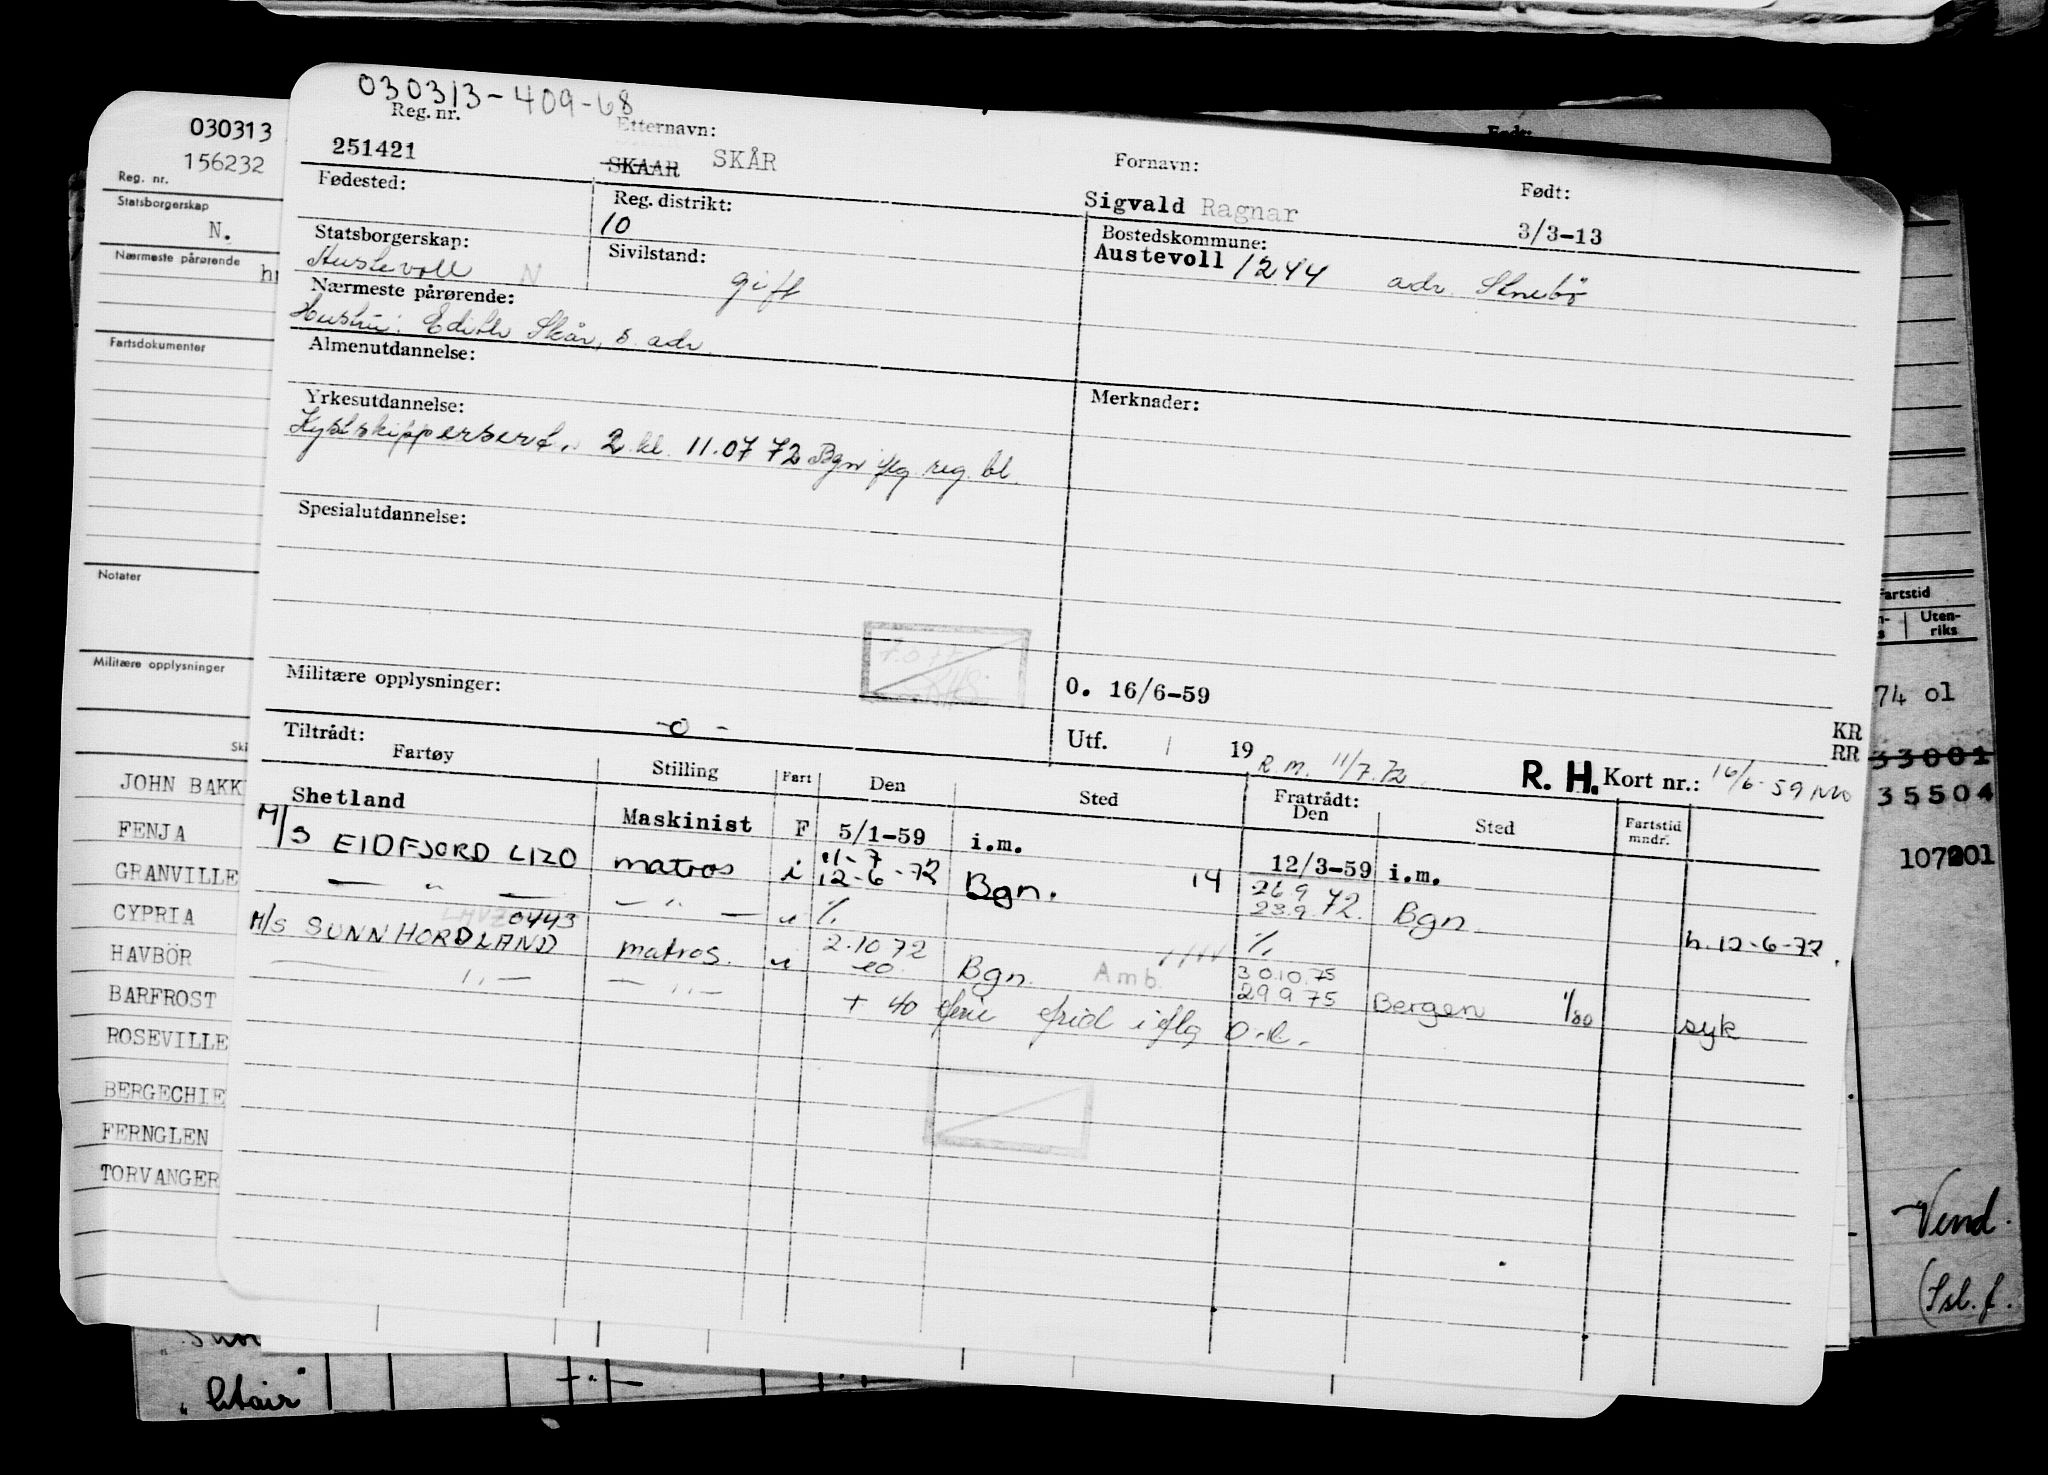 030313-409-68
Reg. nr. Etternavn: Fornavn: Født:
251421 SKAAR SKÅR Sigvald Ragnar 3/3-13
Fødested: Reg. distrikt: Bostedskommune:
10 Austevoll 1244 adr.
Statsborgerskap: Sivilstand:
Austevoll N gift
Nærmeste pårørende:
Hustru: Edith Skår, s. adr.
Almenutdannelse:
Yrkesutdannelse: Merknader:
Kystskippersert. 2 kl. 11.07 72 Bgn iflg reg. bl.
Spesialutdannelse:
Militære opplysninger: O. 16/6-59
-o-
Utf. / 19 R.M. 11/7.72. R. H. Kort nr.: 16/6-59
KR
RR
Tiltrådt: Fratrådt:
Fartøy Stilling Fart Den Sted Den Sted Fartstid mndr.
Shetland Maskinist F 5/1-59 i.m. 12/3-59 i.m.
M/S EIDFJORD LIZO matros i 11-7 12-6-72 Bgn. 14 26.9 23.9.72. Bgn.
— " — — " — " % % h. 12-6-72.
0443
M/S SUNNHORDLAND matros. i 2.10 72 Bgn. Amb. 30.10.75 29 9 75 Bergen 1/80 syk
— " — — " — + 40 iflg
030313
156232
Reg. nr.
Statsborgerskap
N.
Nærmeste pårørende
Fartsdokumenter
Notater
Militære opplysninger
JOHN BAKK
FENJA
GRANVILLE
CYPRIA
HAVBÖR
BARFROST
ROSEVILLE
BERGECHIE
FERNGLEN
TORVANGER
Fartstid
Uten-
riks
74 01
33001
35504
107201
Vend.